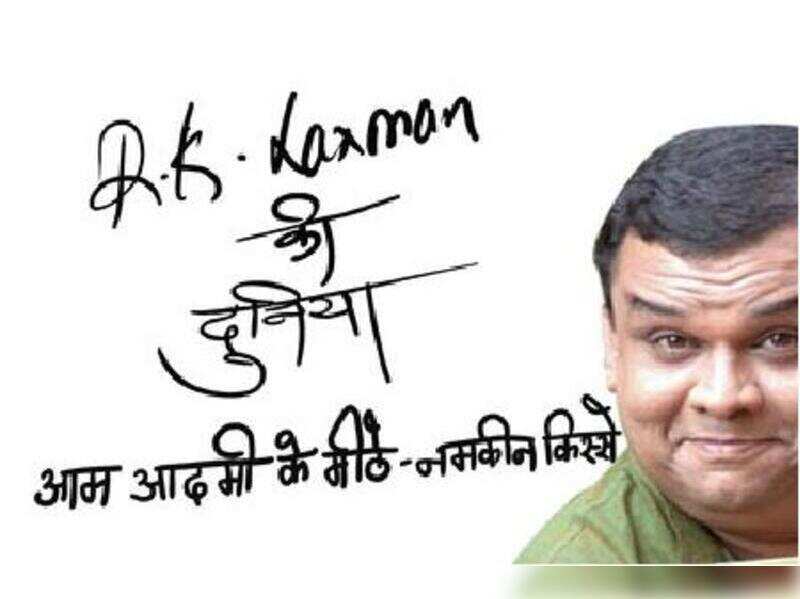 R.K. Laxman
की
दुनिया
आम आदमी के मीठे-नमकीन किस्से